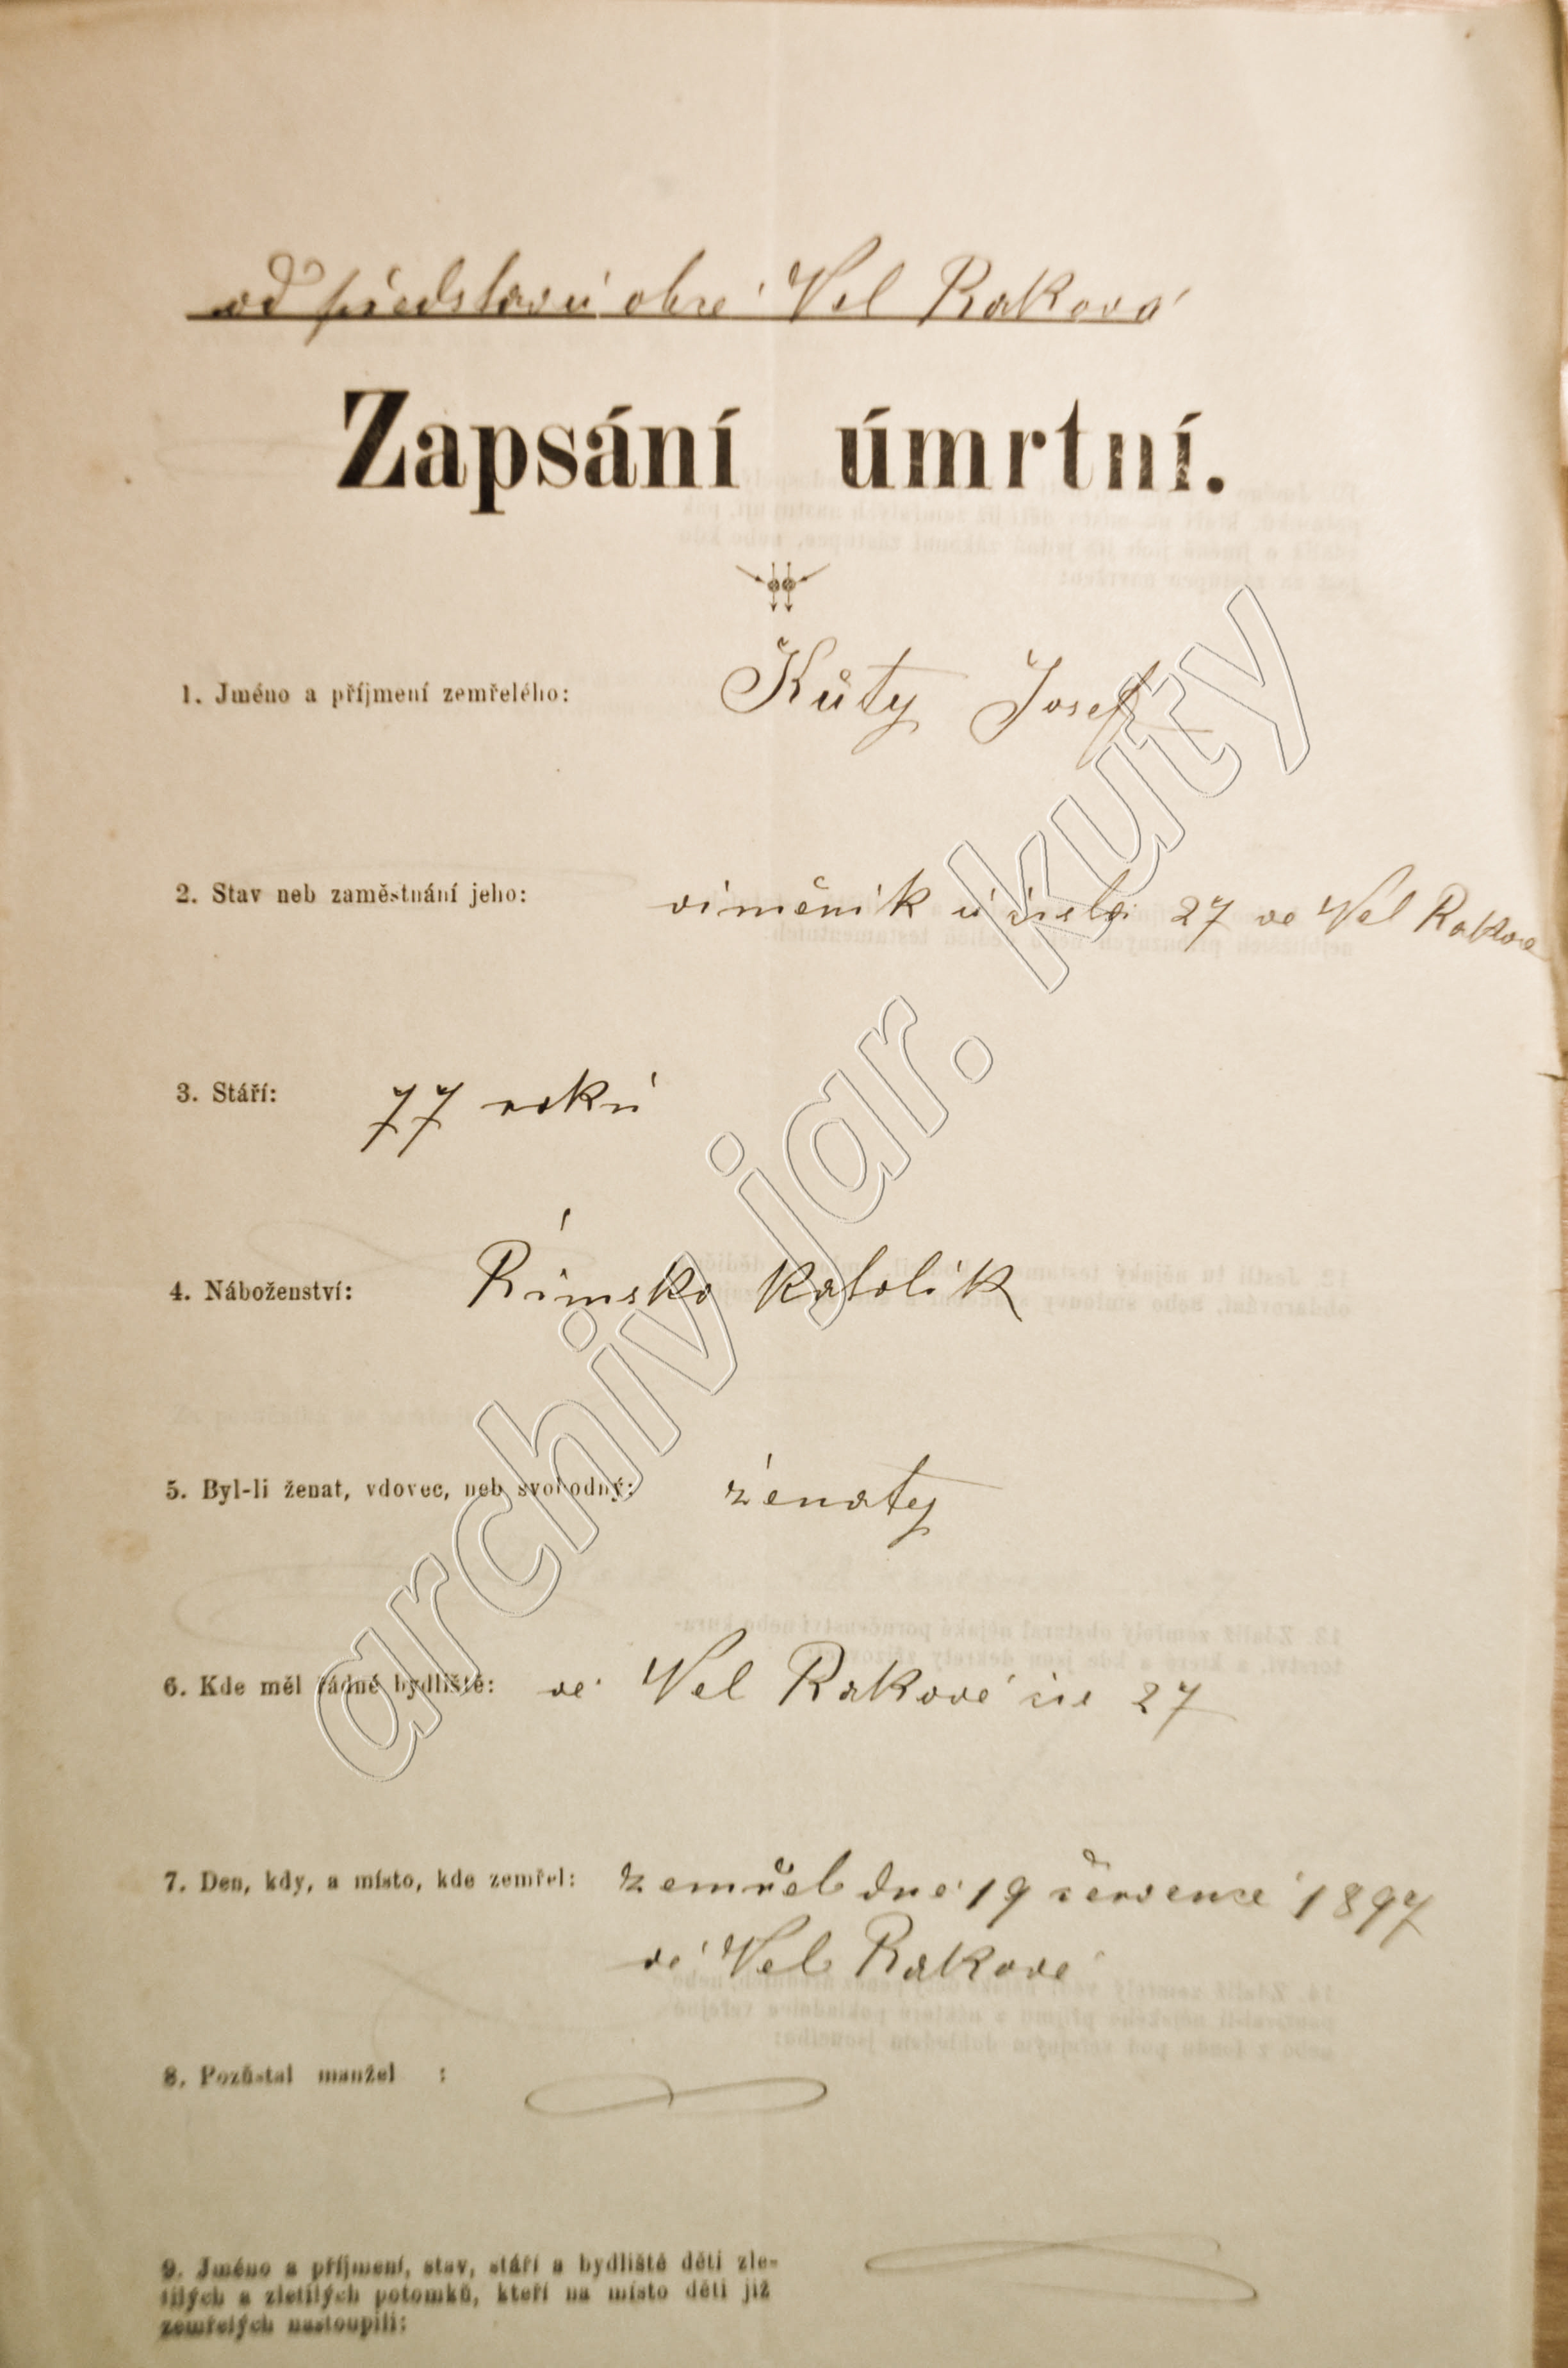 od představ obce Vel Raková
Zapsání úmrtní.
1. Jméno a příjmení zemřelého: Kůty Josef
2. Stav neb zaměstnání jeho: viměnik u čisla 27 ve Vel Rakove
3. Stáří: 77 roků
4. Náboženství: Řimsko Katolik
5. Byl-li ženat, vdovec, neb svobodný: ženaty
6. Kde měl řádné bydliště: ve Vel Rakové čis 27
7. Den, kdy, a místo, kde zemřel: zemřel dne 19 července 1897
ve Vel Rakové
8. Pozůstal manžel :
9. Jméno a příjmení, stav, stáří a bydliště dětí zle-
tilých a zletilých potomků, kteří na místo dětí již
zemřelých nastoupili:
archiv jar. kuty